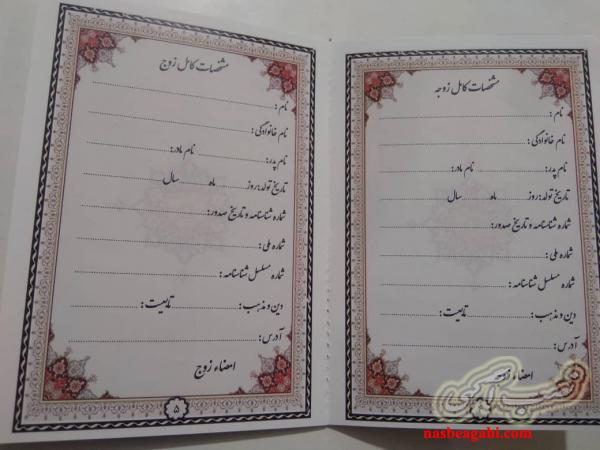 مشخصات کامل زوجه
نام:
نام خانوادگی:
نام پدر: نام مادر:
تاریخ تولد: روز ماه سال
شماره شناسنامه و تاریخ صدور:
شماره ملی:
شماره مسلسل شناسنامه:
دین و مذهب: تابعیت:
آدرس:
امضاء زوجه
مشخصات کامل زوج
نام:
نام خانوادگی:
نام پدر: نام مادر:
تاریخ تولد: روز ماه سال
شماره شناسنامه و تاریخ صدور:
شماره ملی:
شماره مسلسل شناسنامه:
دین و مذهب: تابعیت:
آدرس:
امضاء زوج
۵
نصب آگهی
nasbeagahi.com